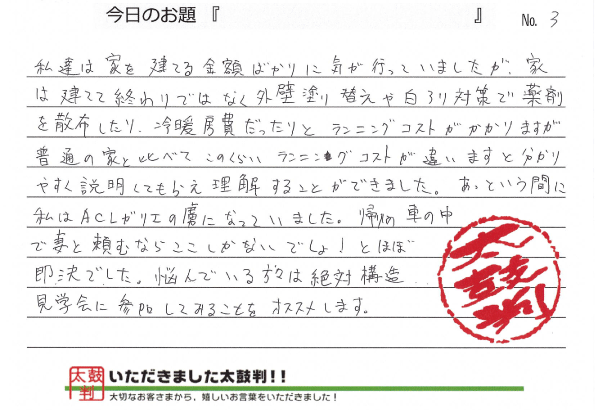 今日のお題『 』 No. 3
私達は家を建てる金額ばかりに気が行っていましたが、家
は建てて終わりではなく外壁塗り替えや白アリ対策で薬剤
を散布したり、冷暖房費だったりとランニングコストがかかりますが
普通の家と比べてこのくらいランニングコストが違いますと分かり
やすく説明してもらえ理解することができました。あっという間に
私はACLがリエの虜になっていました。帰りの車の中
で妻と頼むならここしかないでしょ!とほぼ
即決でした。悩んでいる方々は絶対構造
見学会に参加してみることをオススメします。
太鼓判
太鼓判 いただきました太鼓判!!
大切なお客さまから、嬉しいお言葉をいただきました!